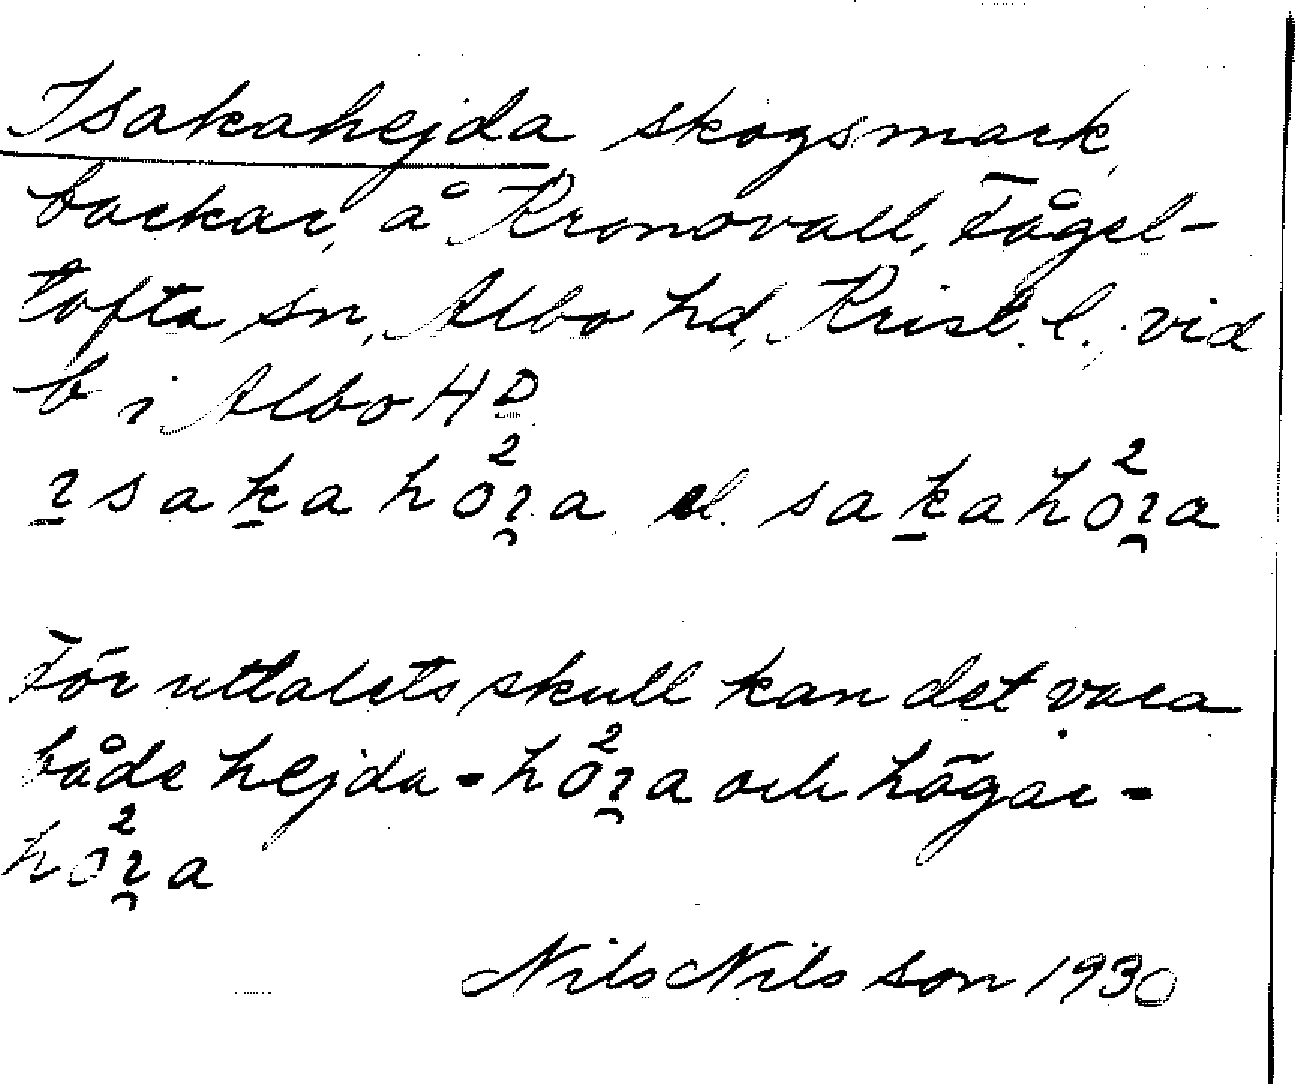 Isakahejda skogsmark,
backar, å Kronovall, Fågel-
tofta sn, Albo hd, Krist. l., vid
b i Albo HD
ısakahoı̯²a el. sakahoı̯²a
För uttalets skull kan det vara
både hejda = hoı̯²a och högar =
hoı̯²a
Nils Nilsson 1930